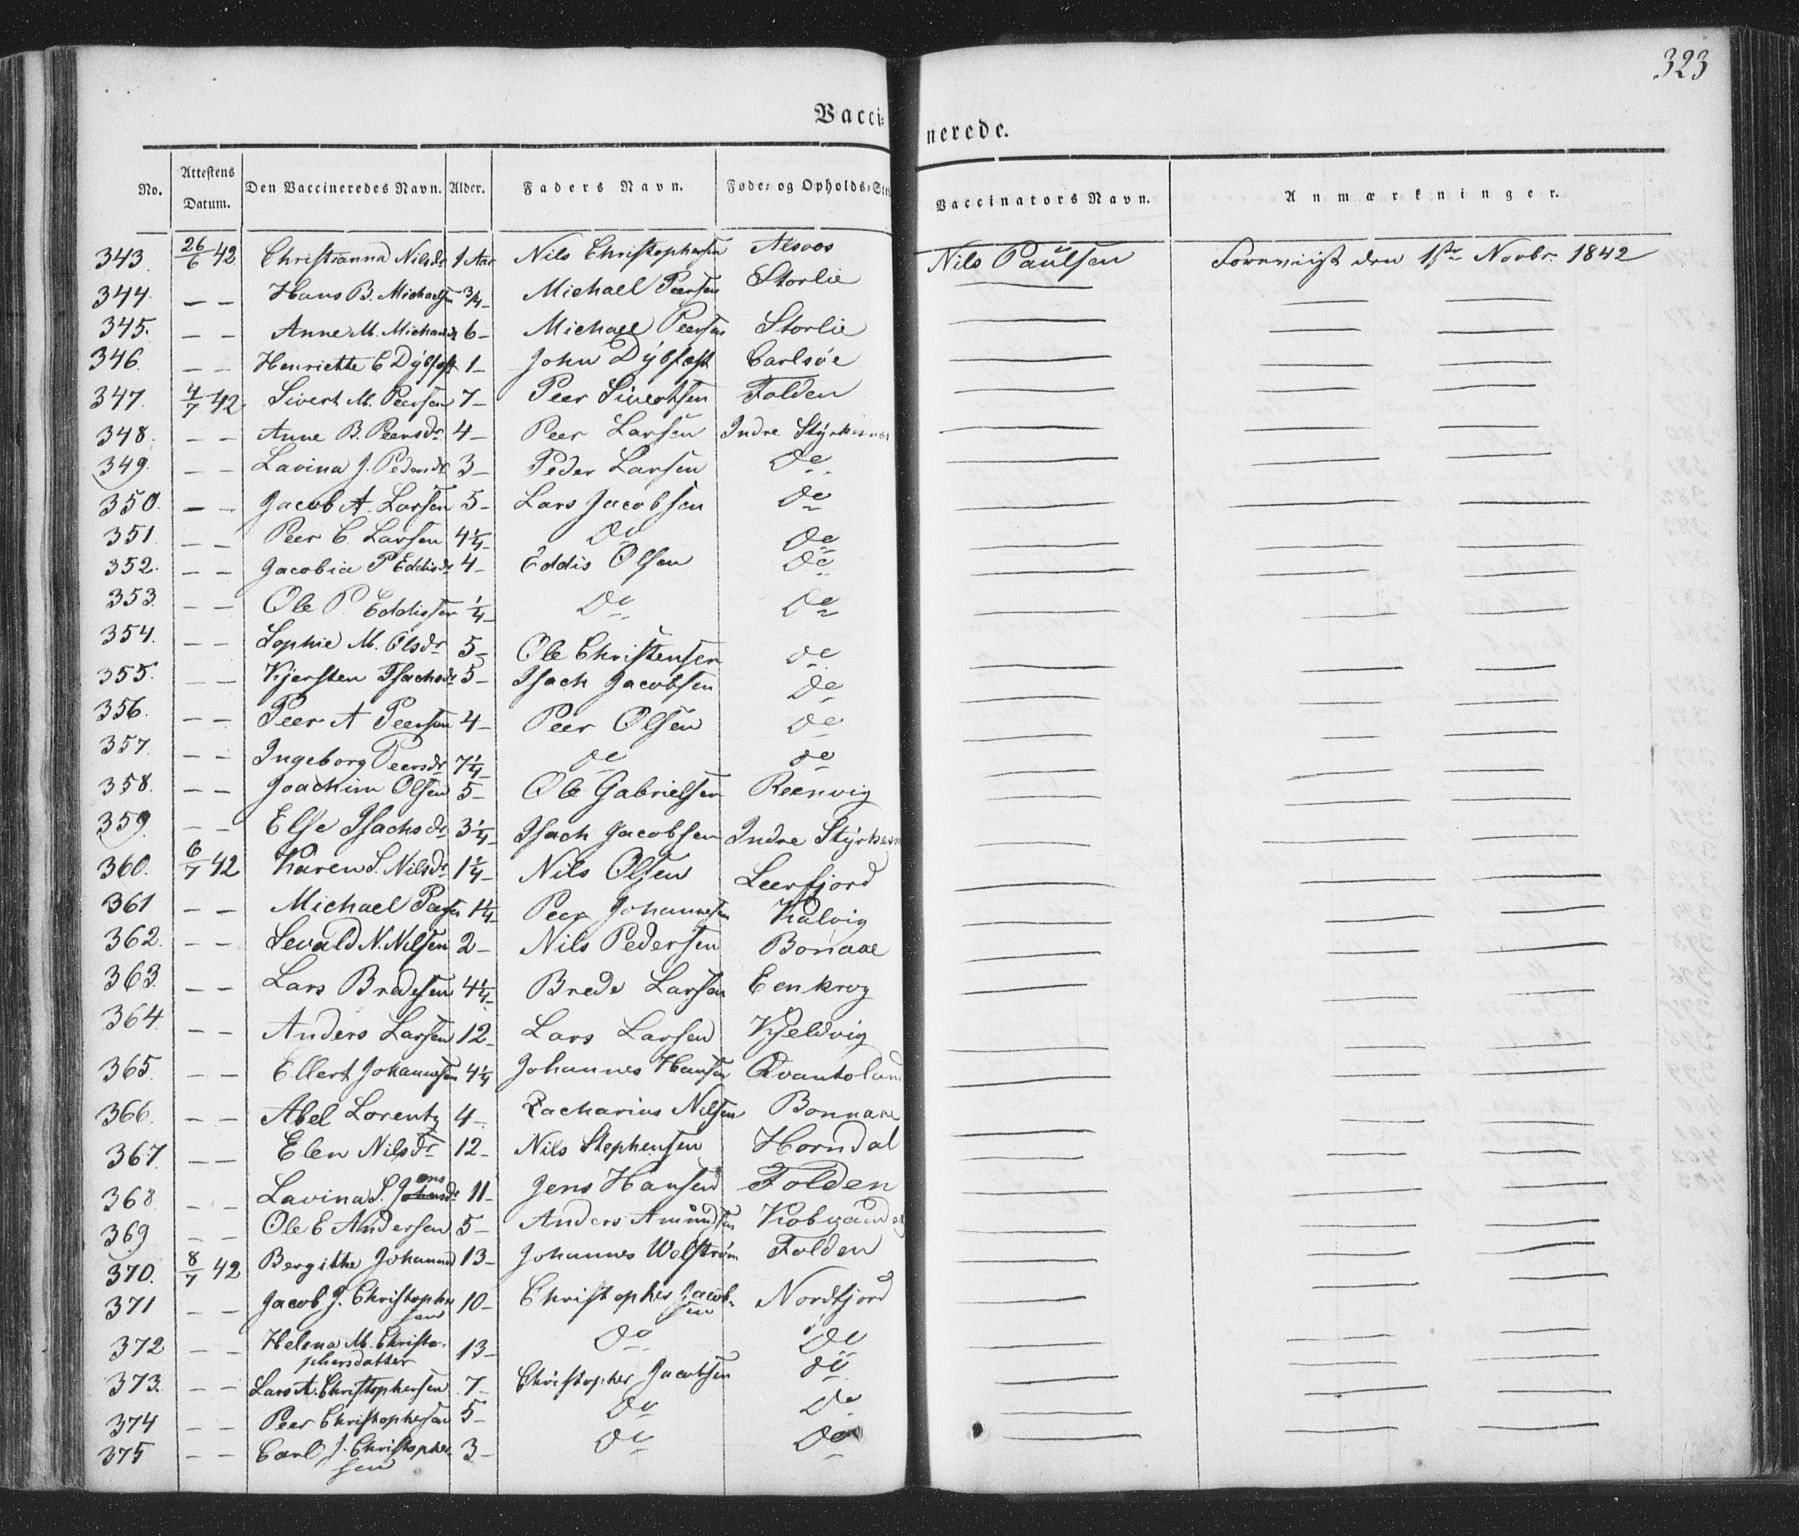 323
Vaccinerede.
No. Attestens Datum. Den Vaccineredes Navn. Alder. Faders Navn. Føde- og Opholds-Ste Vaccinators Navn. Anmærkninger.
343. 26/6 42 Christianna Nilsdr 1 Aar Nils Christophersen Alsoos Nils Paulsen Foreviist den 1ste Novbr 1842
344. — — Hans B. Michaelsen 3/4 — Michael Peersen Storlie — — —
345. — — Anne M. Michaelsdr 6 — Michael Peersen Storlie — — —
346. — — Henriette E 1 — John Carlsøe — — —
347. 4/7 42 Sivert M. Peersen 7 — Peer Sivertsen Folden — — —
348. — — Anne B. Peersdr 4 — Peer Larsen Indre Styrkesnes — — —
349. — — Lavina J. Pedersdr 3 — Peder Larsen Do — — —
350. — — Jacob A. Larsen 5 — Lars Jacobsen Do — — —
351. — — Peer C. Larsen 4 1/4 — Do Do — — —
352. — — Jacobia P Eddisdr 4 — Eddis Olsen Do — — —
353. — — Ole P. Eddissen 1/4 — Do Do — — —
354. — — Sophie M. Olsdr 5 — Ole Christensen do — — —
355. — — Kjersten Isachsdr 5 — Isach Jacobsen Do — — —
356. — — Peer A Peersen 4 — Peer Olsen do — — —
357. — — Ingeborg Peersdr 7 1/4 — do do — — —
358. — — Joachim Olsen 5 — Ole Gabrielsen Reenvig — — —
359. — — Else Isachsdr 3 1/4 — Isach Jacobsen Indre Styrkesn — — —
360. 6/7 42 Karen S. Nilsdr 1 1/4 — Nils Olsen Leerfjord — — —
361 — — Michael Peersen 1 1/4 — Peer Johannesen Kalvig — — —
362. — — Sevald N. Nilsen 2 — Nils Pedersen Bonaae — — —
363. — — Lars Bredesen 4 1/4 — Brede Larsen Eenkrog — — —
364. — — Anders Larsen 12 — Lars Larsen Kjeldvig — — —
365. — — Ellert Johannesen 4 1/4 Johannes Hansen — — —
366. — — Abel Lorentz 4 — Zacharias Nilsen Bonnaae — — —
367. — — Elen Nilsdr 12 — Nils Stephensen Horndal — — —
368. — — Lavina S. Jensdr 11 — Jens Hansen Folden — — —
369 — — Ole E Andersen 5 — Anders Amundsen — — —
370. 8/7 42 Bergitha Johannesd 13 — Johannes Welstrøm Folden — — —
371 — — Jacob J. Christopher 10 — Christopher Jacob- Nordfjord — — —
sen sen
372 — — Helena M. Christo- 13 — Do Do — — —
phersdatter
373. — — Lars A. Christophersen 7 — Christopher Jacobsen do — — —
374 — — Peer Christophersen 5 — Do Do — — —
375 — — Carl J. Christopher 3 — Do Do — — —
sen